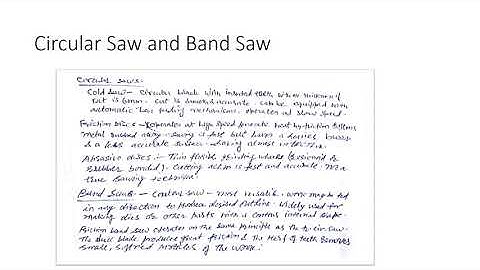 Circular Saw and Band Saw
Circular saws:-
Cold saw - Circular blade with inserted teeth
cut is 6mm. cut is smooth & accurate. can be equipped with
automatic bar feeding mechanisms. operates at slow speed.
Friction Discs - operates at high speed generate heat by friction
metal during
& a less accurate surface.
Abrasive discs :- Thin flexible grinding wheels (resinoid &
rubber bonded). Cutting action is fast and accurate. Not a
true sawing technique.
Band Saws :- Contour saw - Most versatile. work may be fed
in any direction to produce desired outline. Widely used for
making dies or other parts with a contour internal shape.
Friction band saw operates on the same principle as the cir saw.
The dull blade produces great friction & the teeth removes
small, softened particles of the work.